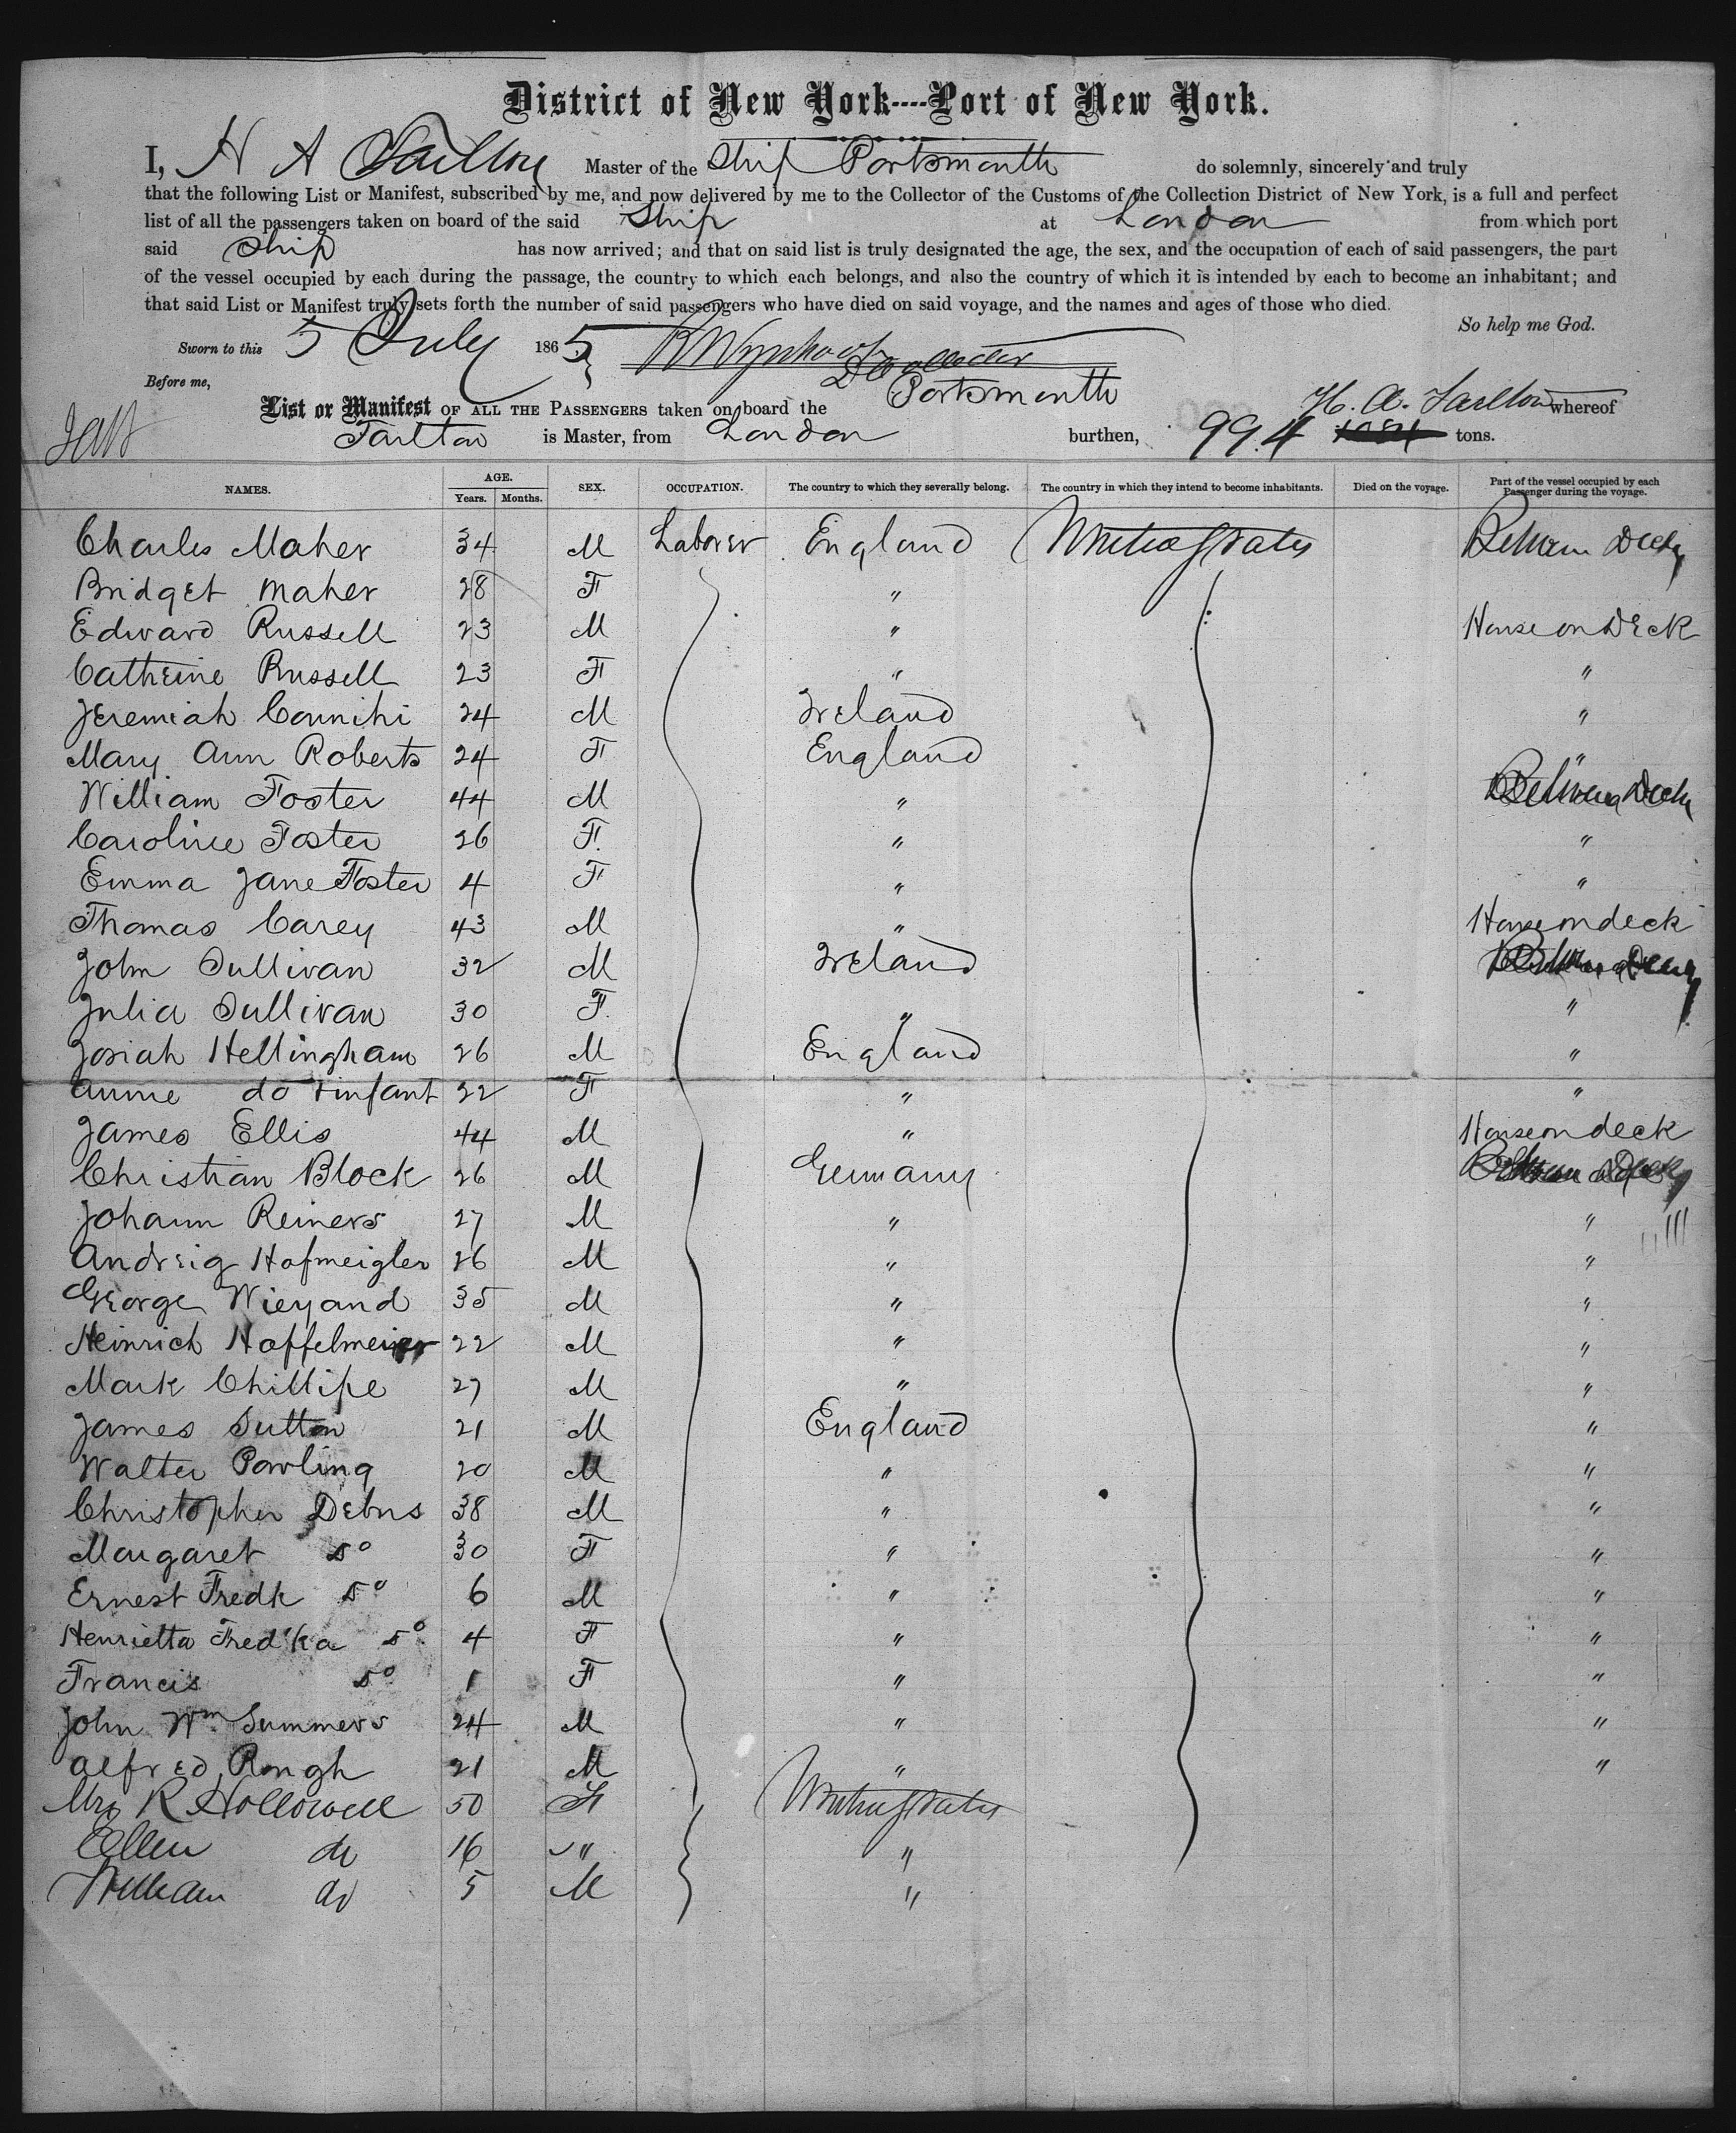 District of New York----Port of New York.
I, H A Tarlton Master of the Ship Portsmouth do solemnly, sincerely and truly
that the following List or Manifest, subscribed by me, and now delivered by me to the Collector of the Customs of the Collection District of New York, is a full and perfect
list of all the passengers taken on board of the said Ship at London from which port
said Ship has now arrived; and that on said list is truly designated the age, the sex, and the occupation of each of said passengers, the part
of the vessel occupied by each during the passage, the country to which each belongs, and also the country of which it is intended by each to become an inhabitant; and
that said List or Manifest truly sets forth the number of said passengers who have died on said voyage, and the names and ages of those who died.
So help me God.
Sworn to this 5 July 1865
Before me, D Collector
H. A. Tarlton
List or Manifest OF ALL THE PASSENGERS taken on board the Portsmouth whereof
Tarlton is Master, from London burthen, 994 tons.
NAMES. AGE. Years. Months. SEX. OCCUPATION. The country to which they severally belong. The country in which they intend to become inhabitants. Died on the voyage. Part of the vessel occupied by each Passenger during the voyage.
Charles Maher 34 M Laborer England United States Between Decks
Bridget Maher 28 F "
Edward Russell 23 M " House on Deck
Catherine Russell 23 F " "
Jeremiah Counihi 24 M Ireland "
Mary Ann Roberts 24 F England "
William Foster 44 M " Between Decks
Caroline Foster 26 F. " "
Emma Jane Foster 4 F " "
Thomas Carey 43 M " House on deck
John Sullivan 32 M Ireland Between Decks
Julia Sullivan 30 F. " "
Josiah Hellingham 26 M England "
Annie do + infant 22 F " "
James Ellis 44 M " House on deck
Christian Block 26 M Germany Between Decks
Johann Reiners 27 M " "
Andreig Hofmeigler 26 M " "
George Wieyand 35 M " "
Heinrich Hoffelmeier 22 M " "
Mark Chillipe 27 M " "
James Sutton 21 M England "
Walter Powling 20 M " "
Christopher Debus 38 M " "
Margaret Do 30 F " "
Ernest Fredk Do 6 M " "
Henrietta Fred'ka Do 4 F " "
Francis Do 1 F " "
John Wm. Summers 24 M " "
Alfred Rough 21 M " "
Mrs R Hollowell 50 F United States
Ellen do 16 " "
William do 5 M "